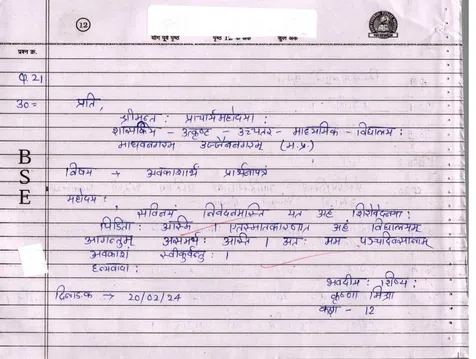 12
योग पूर्व पृष्ठ पृष्ठ 12 के अंक कुल अंक
प्रश्न क्र.
प्र 21
उ० =
प्रति,
श्रीमन्त : प्राचार्यमहोदया :
शासकिय - उत्कृष्ट - उच्चतर - माध्यमिक - विद्यालय :
माधवनगरम् उज्जैनगरम् (म.प्र.)
B
S
E
विषय → अवकाशार्थं प्रार्थनापत्रं
महोदय :
सविनयं निवेदनमास्ति यत अहं शिरोवेदनया :
पिडिता : अस्मि । एतस्मातकारणात अहं विद्यालयम्
आगन्तुम् असमर्थ : अस्ति । अत : मम पञ्चदिवसानाम्
अवकाशं स्वीकुर्वन्तु : ।
धन्यवादा :
भवदीय : शिष्य :
दिनाङ्क → 20/02/24
कृष्णा मिश्रा
कक्षा - 12